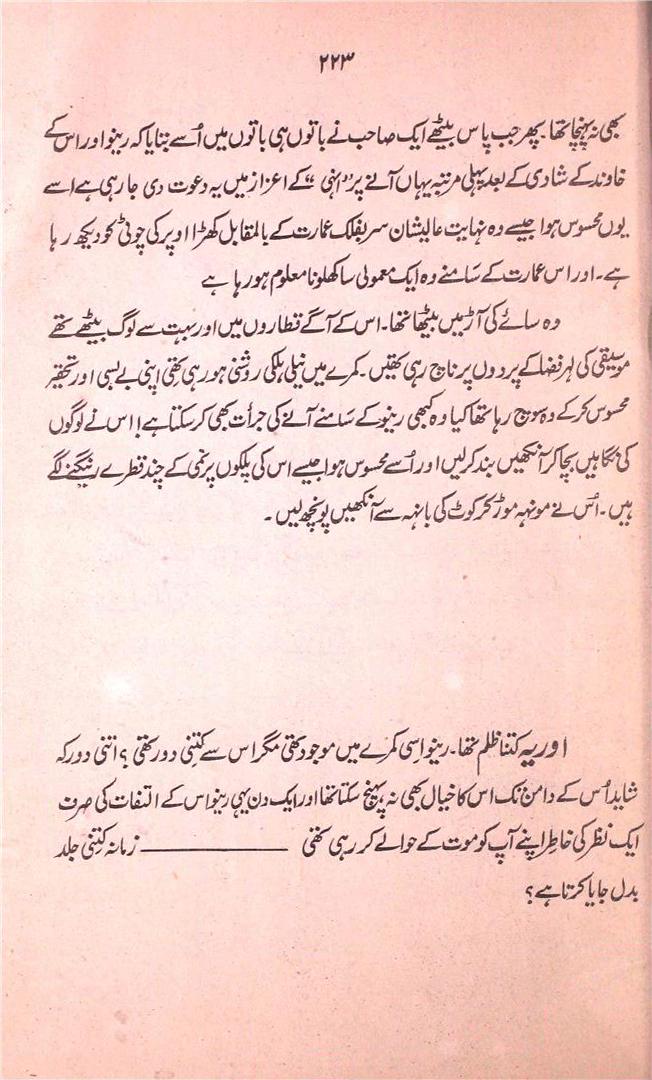 ۲۲۳
بھی نہ پہنچا تھا۔ پھر جب پاس بیٹھے ایک صاحب نے باتوں ہی باتوں میں اُسے بتایا کہ رینو اور اس کے
خاوند کے شادی کے بعد پہلی مرتبہ یہاں آنے پر "انہی" کے اعزاز میں یہ دعوت دی جا رہی ہے اسے
یوں محسوس ہوا جیسے وہ نہایت عالیشان سربفلک عمارت کے بالمقابل کھڑا اوپر کی چوٹی کو دیکھ رہا
ہے۔ اور اس عمارت کے سامنے وہ ایک معمولی سا کھلونا معلوم ہو رہا ہے
وہ سائے کی آڑ میں بیٹھا تھا۔ اس کے آگے قطاروں میں اور بہت سے لوگ بیٹھے تھے
موسیقی کی لہر فضا کے پردوں پر ناچ رہی تھیں۔ کمرے میں نیلی ہلکی روشنی ہو رہی تھی اپنی بے بسی اور تحقیر
محسوس کر کے وہ سوچ رہا تھا کیا وہ کبھی رینو کے سامنے آنے کی جرأت بھی کر سکتا ہے! اس نے لوگوں
کی نگاہیں بچا کر آنکھیں بند کر لیں اور اُسے محسوس ہوا جیسے اس کی پلکوں پر نمی کے چند قطرے رینگنے لگے
ہیں۔ اُس نے مونہہ موڑ کر کوٹ کی بانہہ سے آنکھیں پونچھ لیں۔
اور یہ کتنا ظلم تھا۔ رینو اسی کمرے میں موجود تھی مگر اس سے کتنی دور تھی ؟ اتنی دور کہ
شاید اُس کے دامن تک اس کا خیال بھی نہ پہنچ سکتا تھا اور ایک دن یہی رینو اس کے التفات کی صرف
ایک نظر کی خاطر اپنے آپ کو موت کے حوالے کر رہی تھی ———— زمانہ کتنی جلد
بدل جایا کرتا ہے ؟